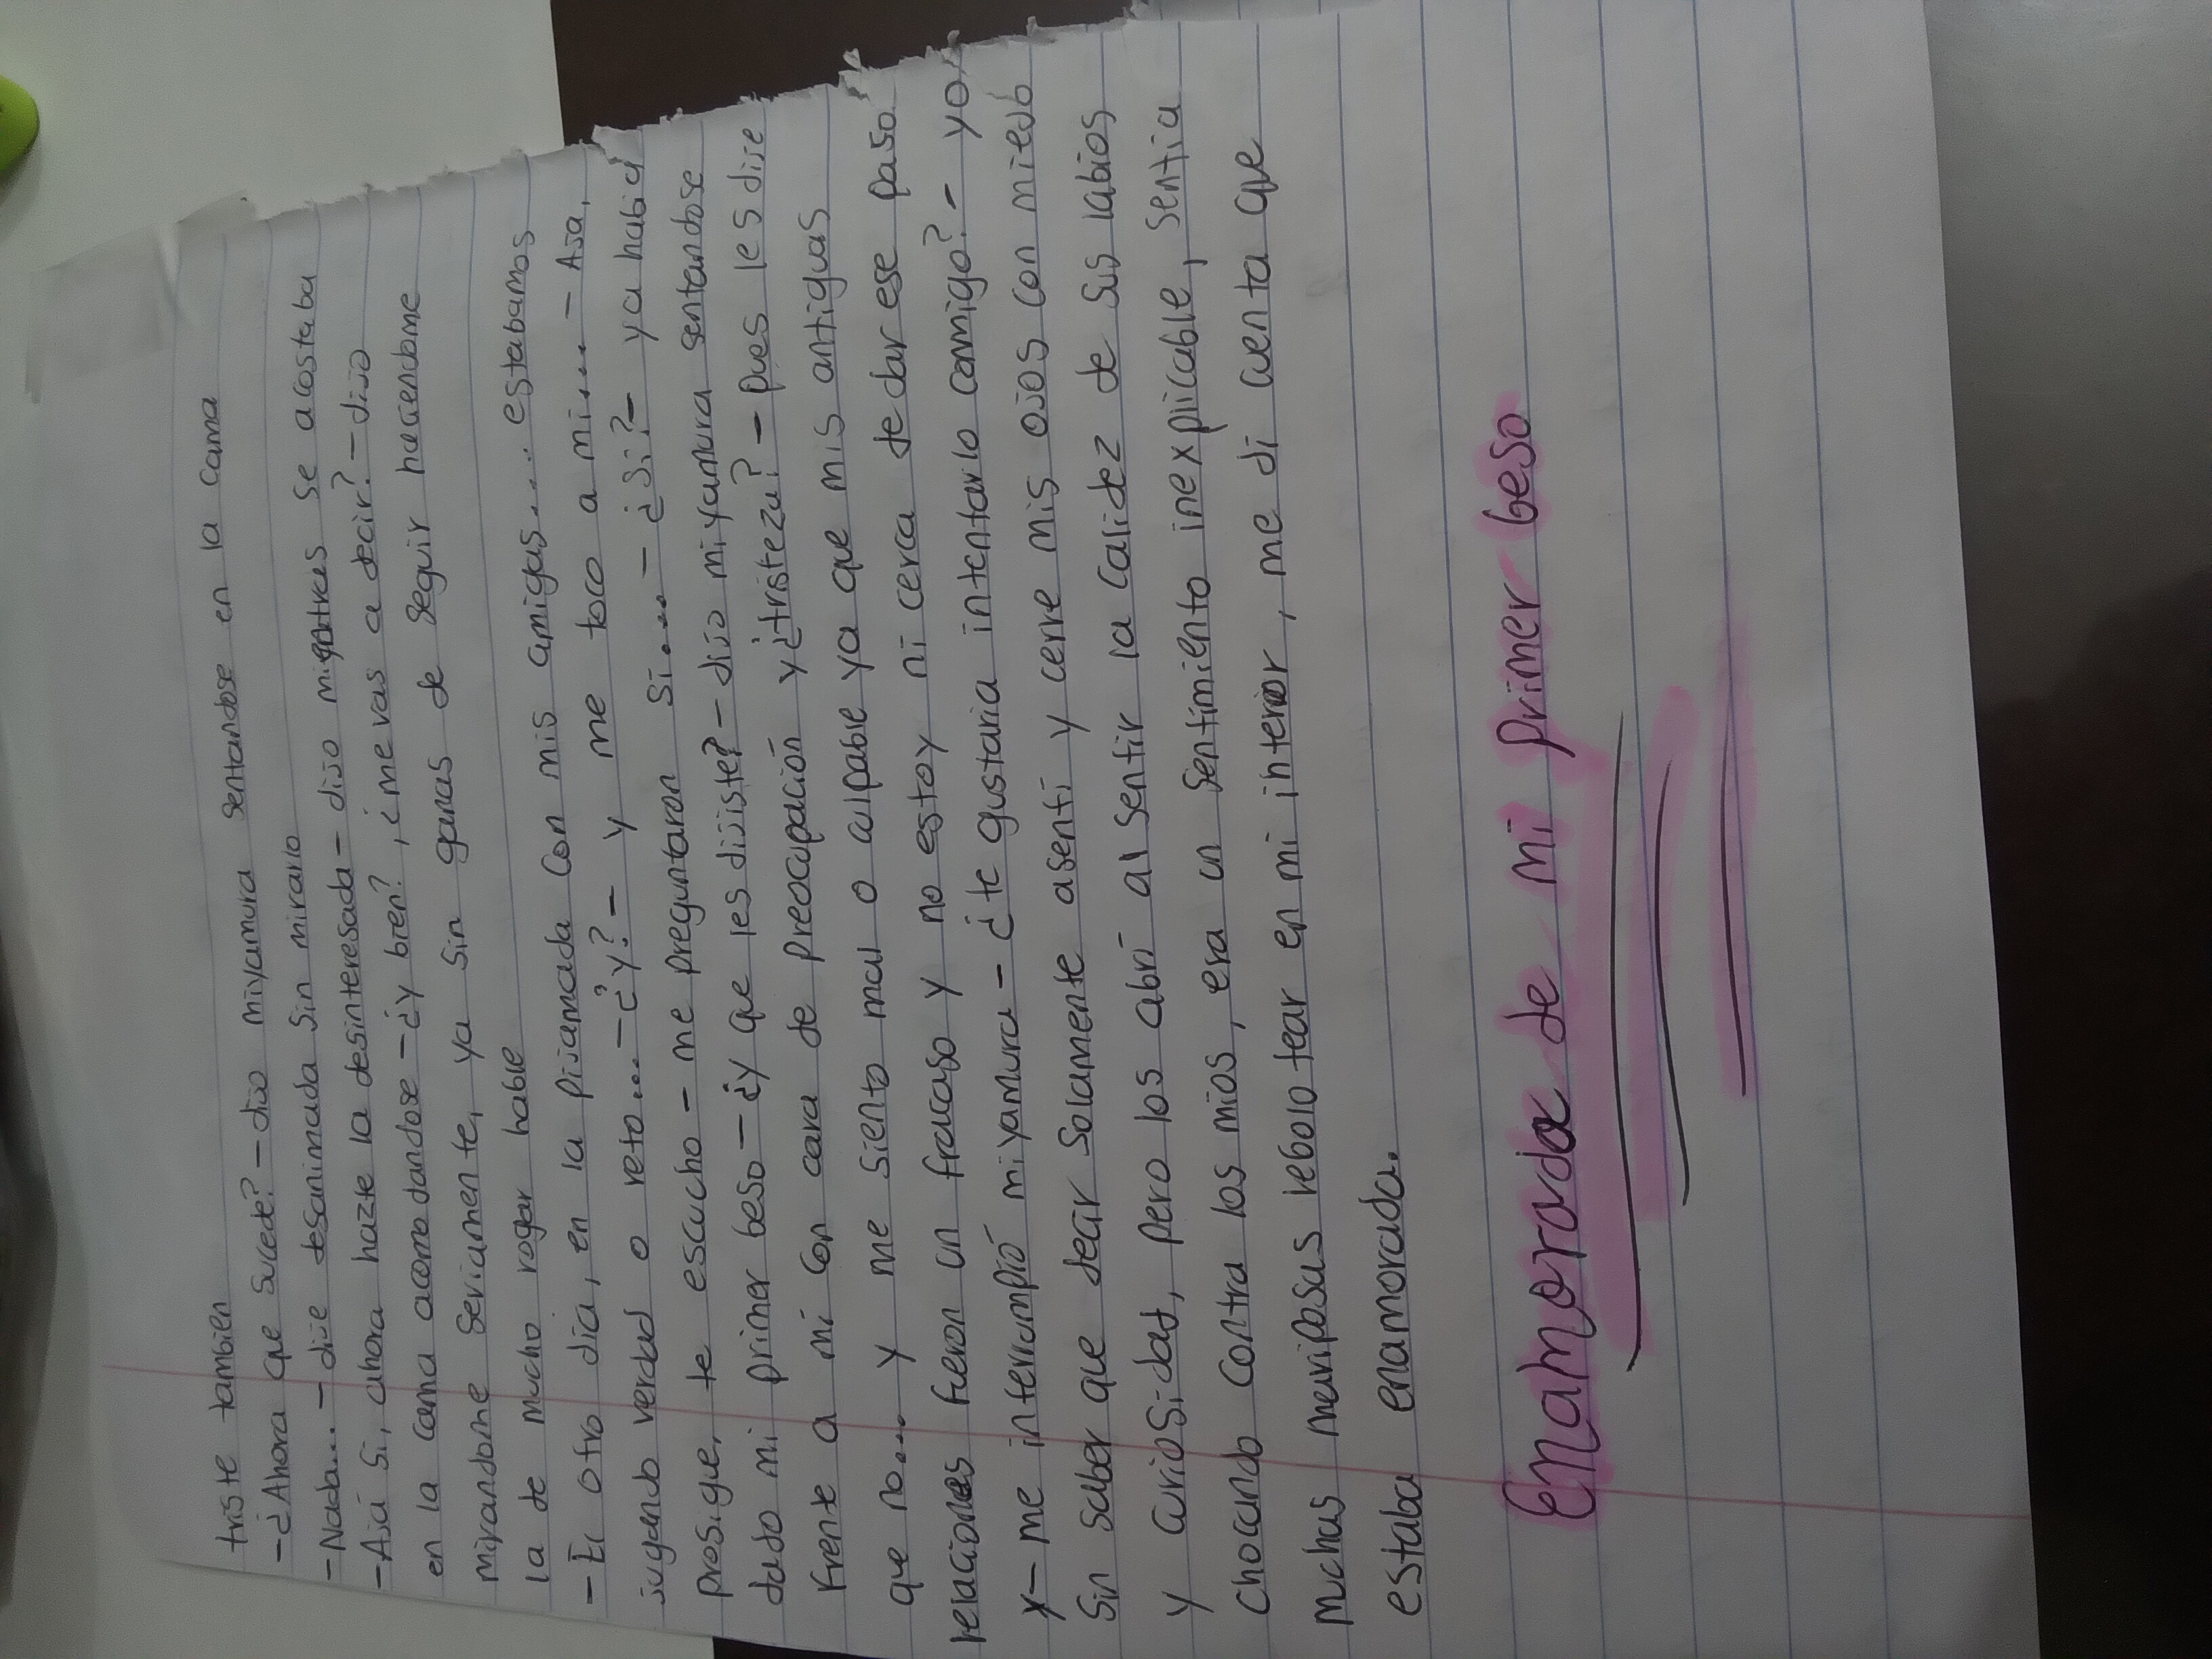 triste tambien
- ¿Ahora que sucede? - dijo miyamura sentandose en la cama
- Nada... - dije desanimada sin mirarlo
- Ajá si, ahora hazte la desinteresada - dijo mientres se acostaba
en la cama acomodandose - ¿y bien?, ¿me vas a decir? - dijo
mirandome seriamente, ya sin ganas de seguir haciendome
la de mucho rogar hable
- El otro día, en la pijamada con mis amigas.... estabamos
jugando verdad o reto... - ¿y? - y me toco a mi.... - Aja,
prosigue, te escucho - me preguntaron si.... - ¿si? - ya habia
dado mi primer beso - ¿y que les dijiste? - dijo miyamura sentandose
frente a mi con cara de preocupación y ¿tristeza? - pues les dije
que no.... y me siento mal o culpable ya que mis antiguas
relaciones fueron un fracaso y no estoy ni cerca de dar ese paso
y - me interrumpió miyamura - ¿te gustaria intentarlo conmigo? - yo
sin saber que decir solamente asenti y cerre mis ojos con miedo
y curiosidad, pero los abrí al sentir la calidez de sus labios
chocando contra los mios, era un sentimiento inexplicable, sentia
muchas mariposas rebolotear en mi interior, me di cuenta que
estaba enamorada.
Enamorada de mi primer beso